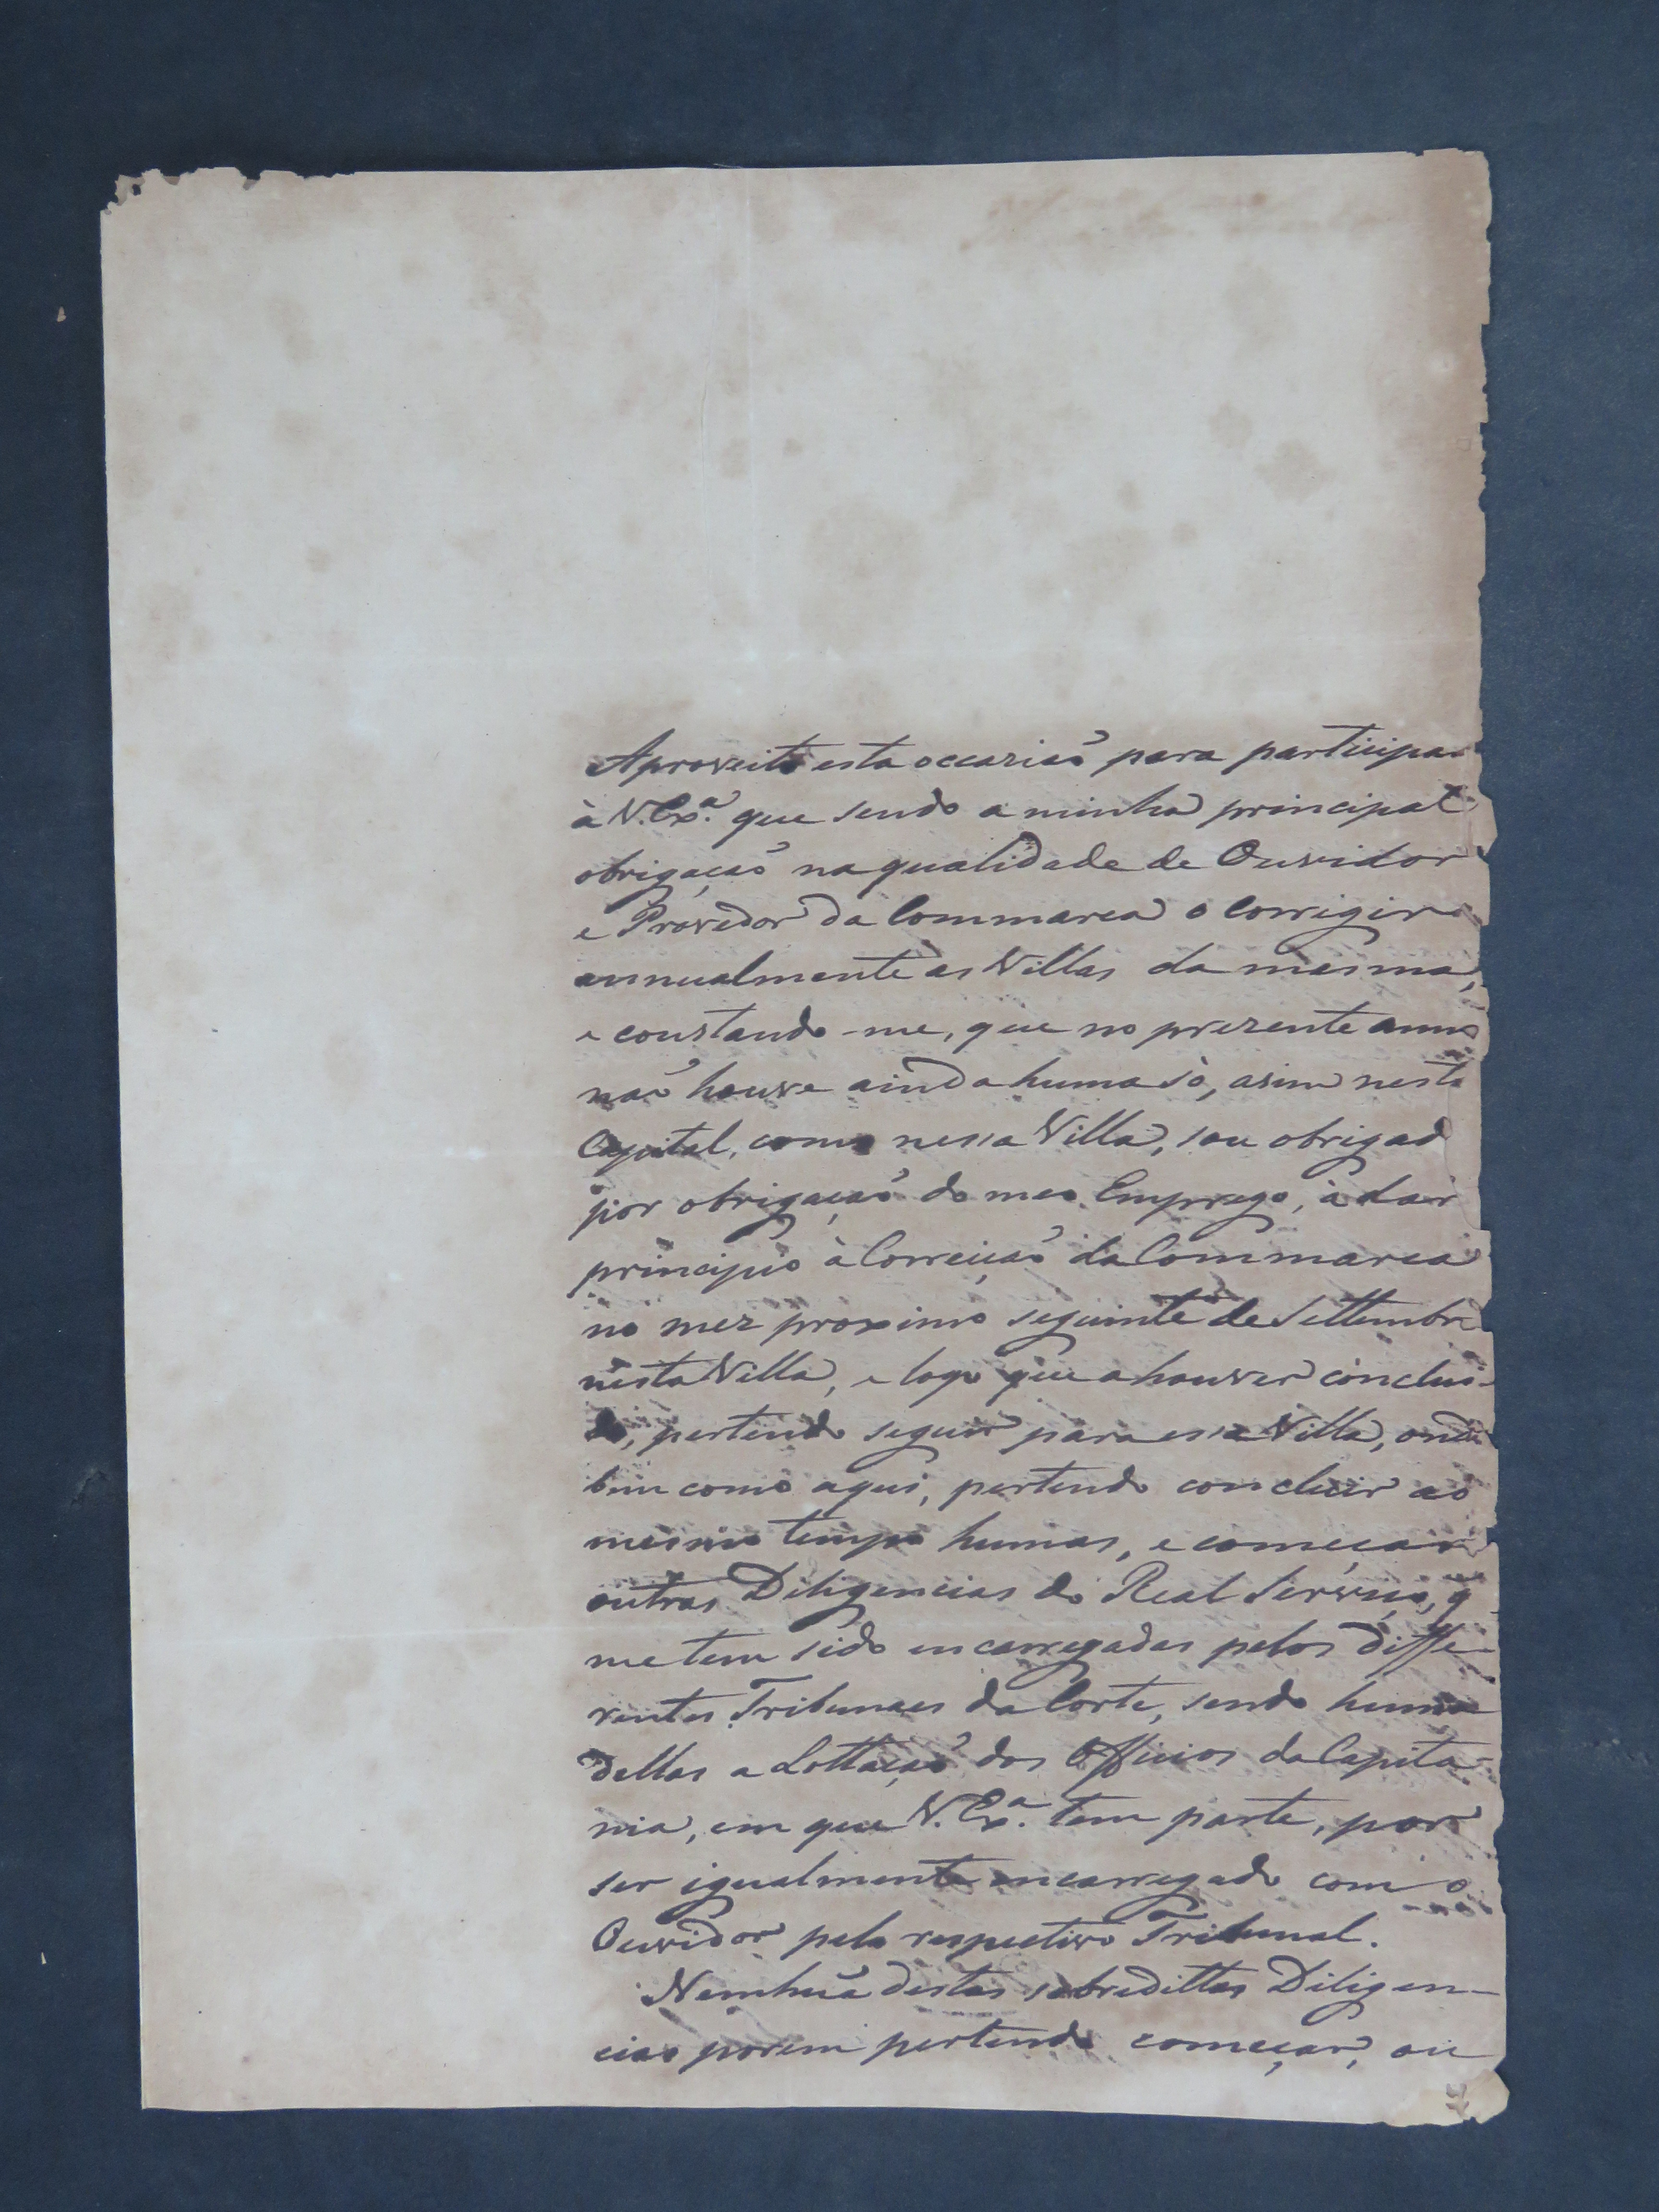 Aproveito esta occaziaõ para participar
à V. Exª. que sendo a minha principal
obrigaçaõ na qualidade de Ouvidor
e Provedor da Commarca o Corrigir
annualmente as Villas da mesma,
e constando-me, que no prezente anno
naõ houve ainda huma sò, asim nesta
Capital, como nessa Villa, sou obrigad
por obrigaçaõ do meo Emprego, à dar
principio à Correiçaõ da Commarca
no mez proximo seguinte de Settembro
nesta Villa, e logo que a houver conclui-
do, pertendo seguir para essa Villa, onde
bem como aqui, pertendo concluir ao
mesmo tempo humas, e começar
outras Diligencias do Real Serviço, q
me tem sido encarregadas pelos diffe-
rentes Tribunaes da Corte, sendo huma
dellas a Lottaçaõ dos Officios da Capita-
nia, em que V. Exª. tem parte, por
ser igualmente encarregado com o
Ouvidor pelo respectivo Tribunal.
Nenhuã destas sobredittas Diligen-
cias porem pertendo começar, ou